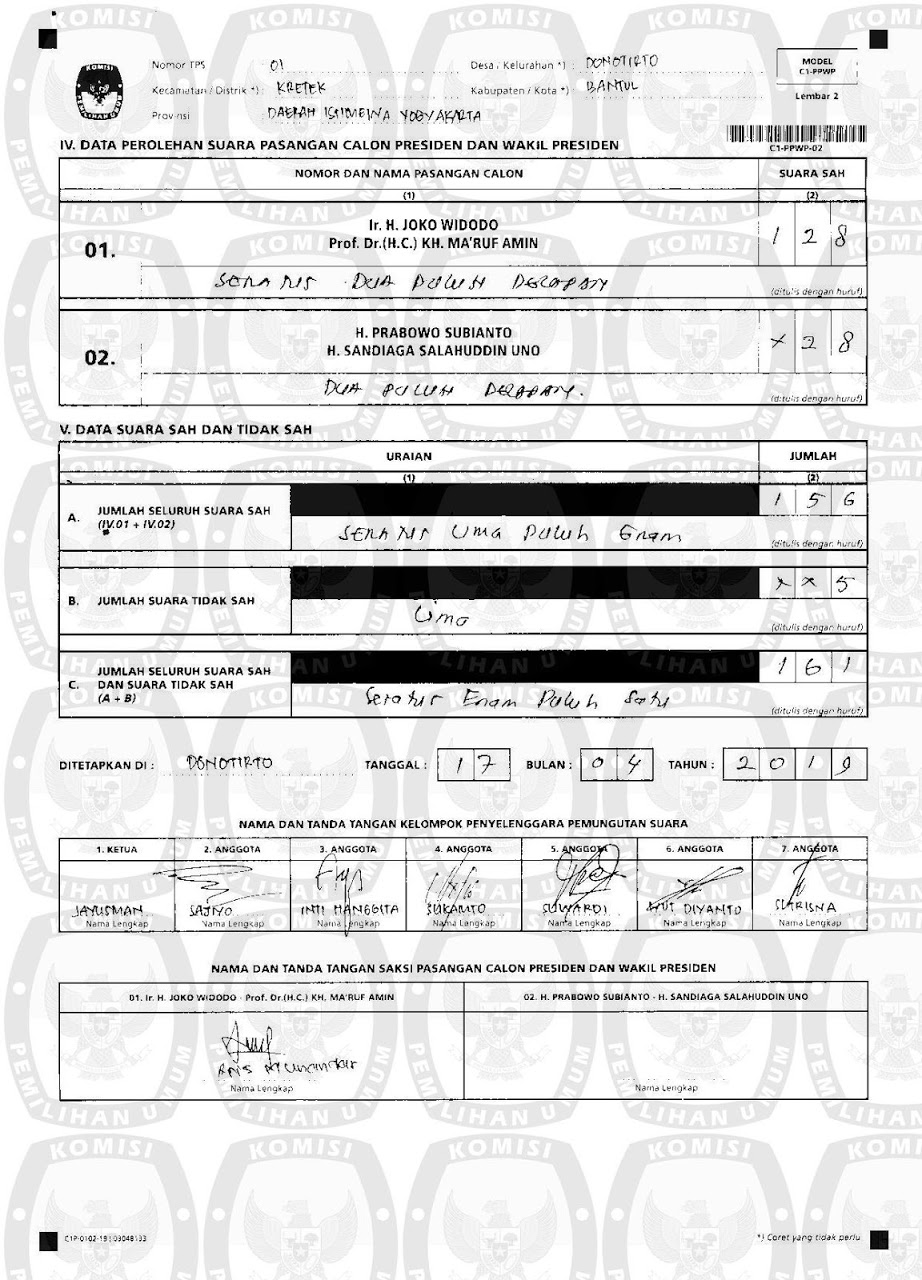 Nomor TPS : 01
Desa / Kelurahan *) : DONOTIRTO
MODEL
C1-PPWP
Kecamatan / Distrik *) : KRETEK
Kabupaten / Kota *) : BANTUL
Lembar 2
Provinsi : DAERAH ISTIMEWA YOGYAKARTA
C1-PPWP-02
IV. DATA PEROLEHAN SUARA PASANGAN CALON PRESIDEN DAN WAKIL PRESIDEN
NOMOR DAN NAMA PASANGAN CALON SUARA SAH
(1) (2)
01. Ir. H. JOKO WIDODO
Prof. Dr.(H.C.) KH. MA'RUF AMIN
1 2 8
SERATUS DUA PULUH DELAPAN
(ditulis dengan huruf)
02. H. PRABOWO SUBIANTO
H. SANDIAGA SALAHUDDIN UNO
X 2 8
DUA PULUH DELAPAN.
(ditulis dengan huruf)
V. DATA SUARA SAH DAN TIDAK SAH
URAIAN JUMLAH
(1) (2)
A. JUMLAH SELURUH SUARA SAH
(IV.01 + IV.02)
1 5 6
SERATUS Lima Puluh Enam
(ditulis dengan huruf)
B. JUMLAH SUARA TIDAK SAH
X X 5
Lima
(ditulis dengan huruf)
C. JUMLAH SELURUH SUARA SAH
DAN SUARA TIDAK SAH
(A + B)
1 6 1
Seratus Enam Puluh Satu
(ditulis dengan huruf)
DITETAPKAN DI : DONOTIRTO TANGGAL : 1 7 BULAN : 0 4 TAHUN : 2 0 1 9
NAMA DAN TANDA TANGAN KELOMPOK PENYELENGGARA PEMUNGUTAN SUARA
1. KETUA 2. ANGGOTA 3. ANGGOTA 4. ANGGOTA 5. ANGGOTA 6. ANGGOTA 7. ANGGOTA
JAYUSMAN SAJIYO INTI HANGGITA SUKAMTO SUWARDI DIYANTO SUTRISNA
Nama Lengkap Nama Lengkap Nama Lengkap Nama Lengkap Nama Lengkap Nama Lengkap Nama Lengkap
NAMA DAN TANDA TANGAN SAKSI PASANGAN CALON PRESIDEN DAN WAKIL PRESIDEN
01. Ir. H. JOKO WIDODO - Prof. Dr.(H.C.) KH. MA'RUF AMIN 02. H. PRABOWO SUBIANTO - H. SANDIAGA SALAHUDDIN UNO
Nama Lengkap Nama Lengkap
*) Coret yang tidak perlu